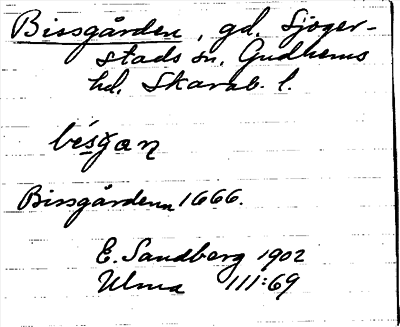 Bissgården, gd, Sjoger-
stads sn, Gudhems
hd, Skarab. l.
bésgan
Bissgården 1666.
E. Sandberg 1902
Ulma 111:69